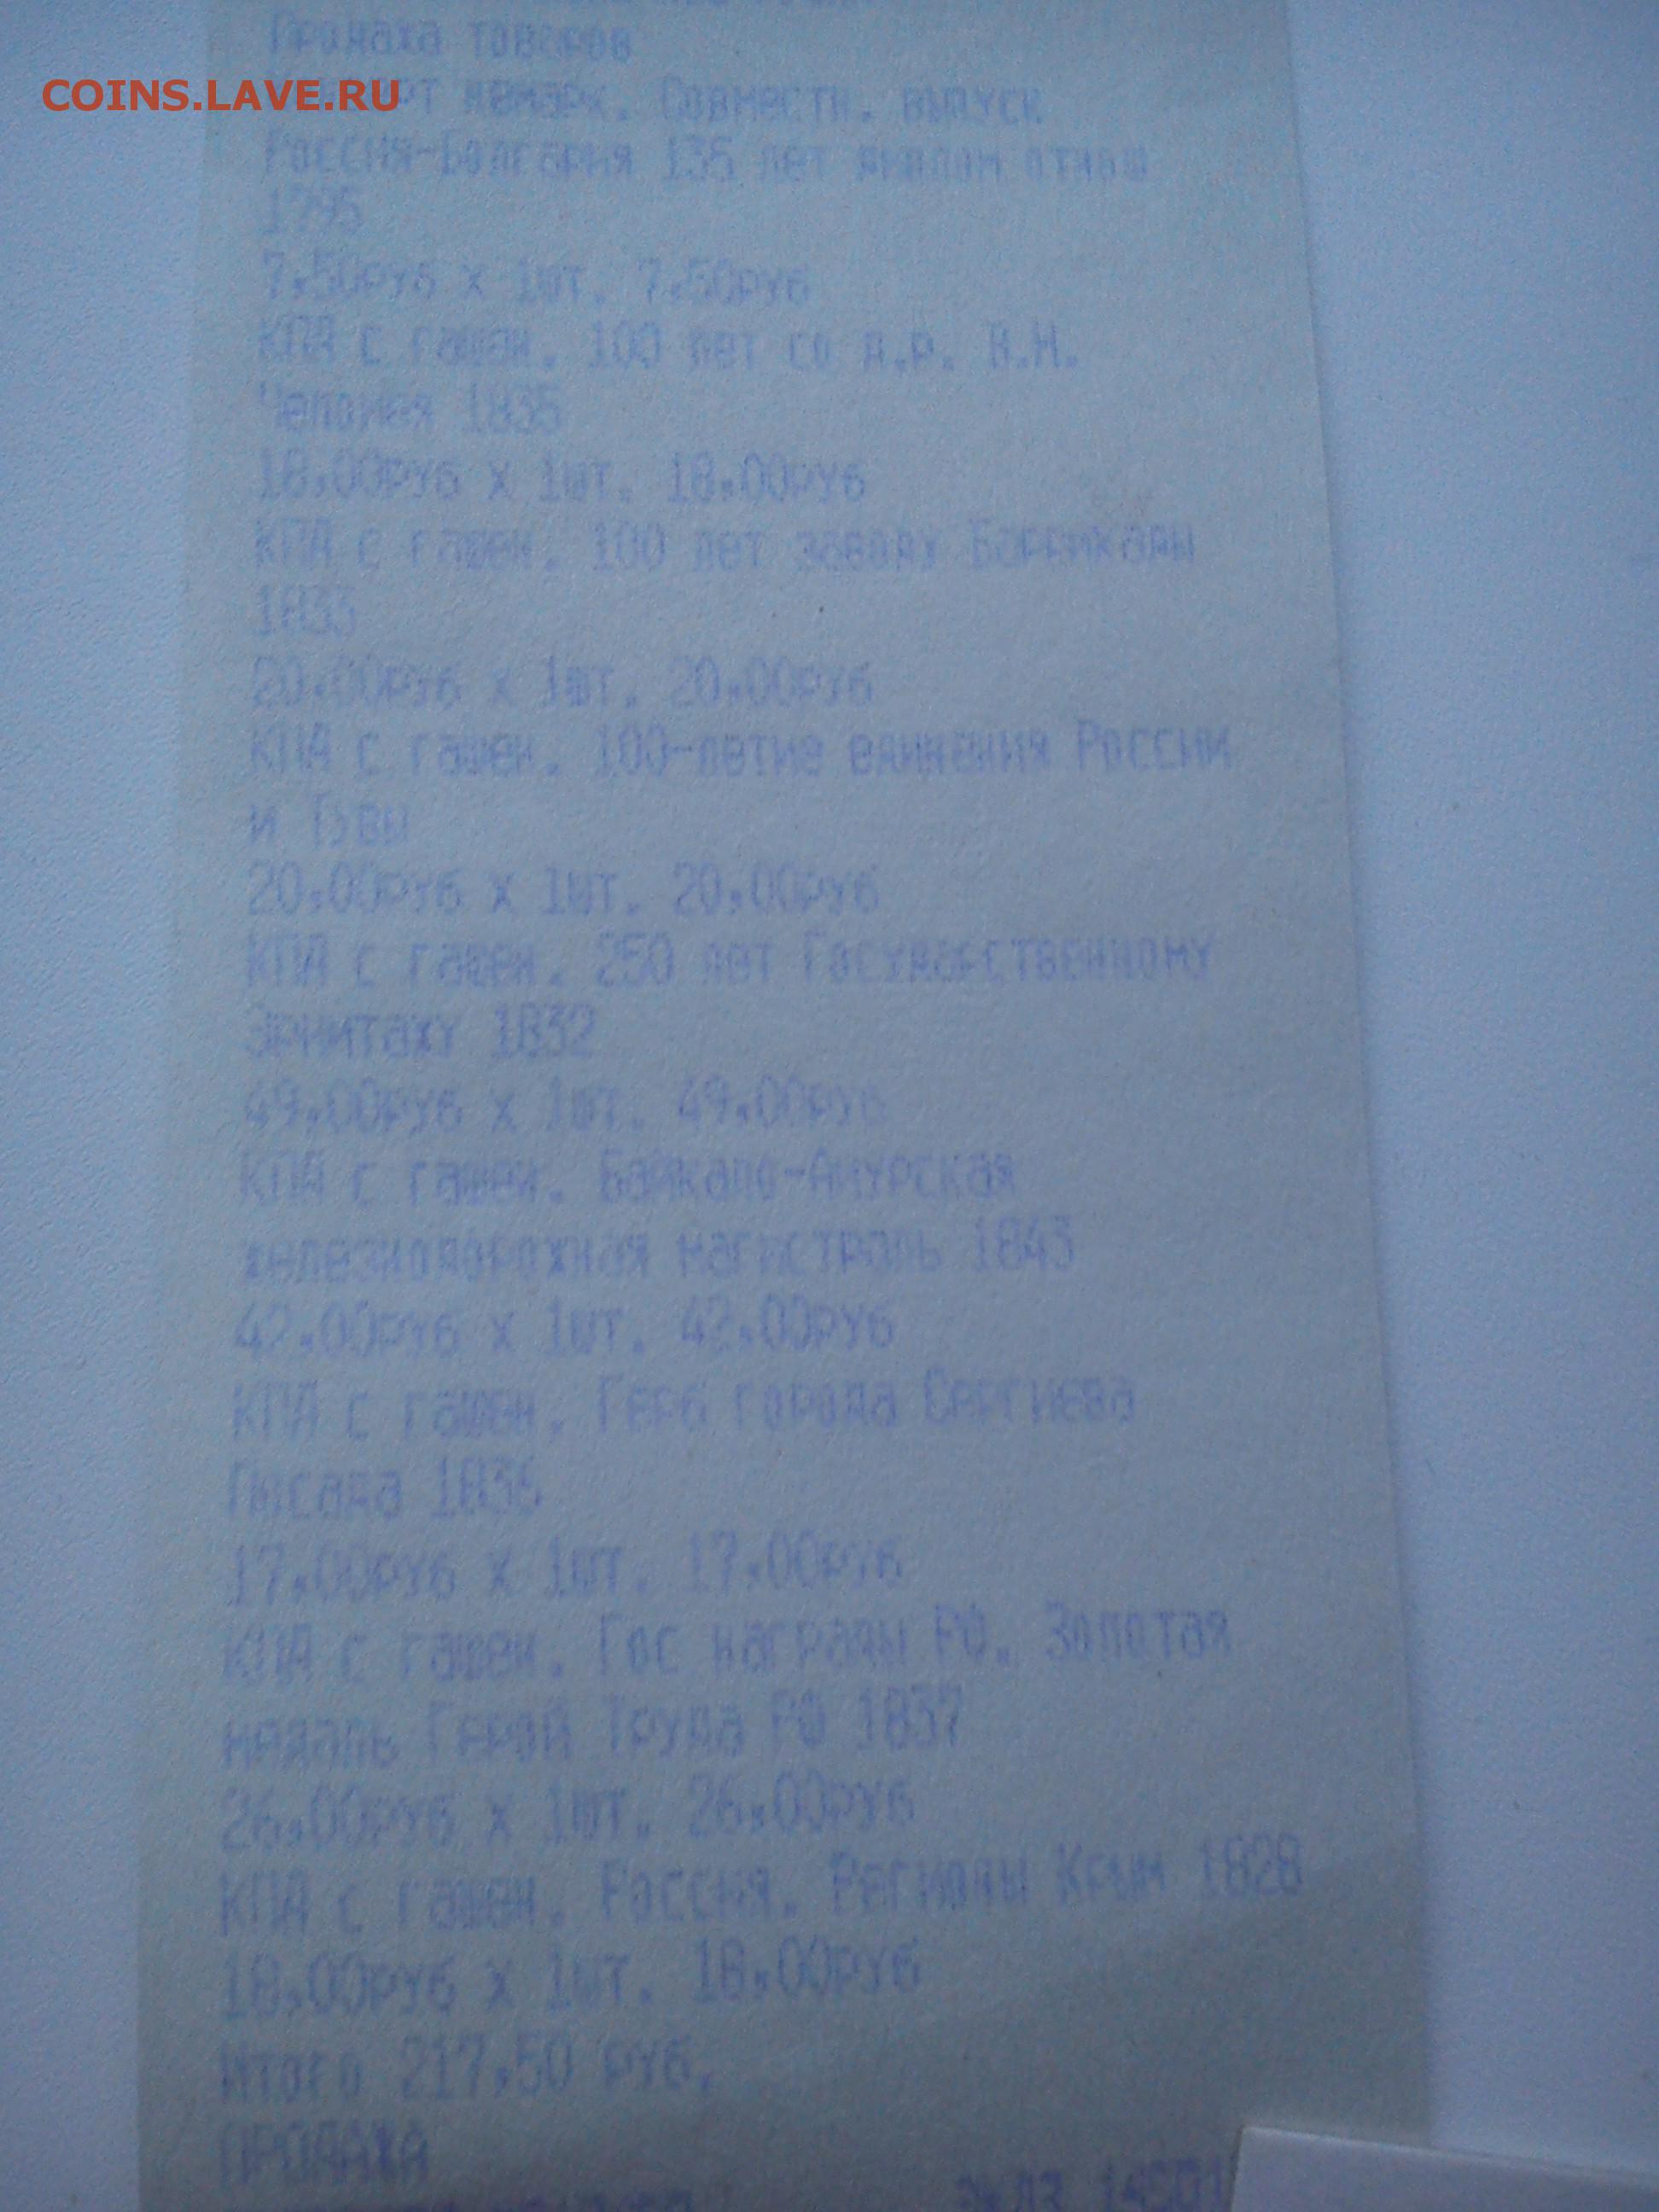 Продажа товаров
COINS.LAVE.RU
немарк. Совместн. выпуск
Россия-Болгария 135 лет диплом отнош
1795
7,50руб х 1шт. 7,50руб
КПА с гашен. 100 лет со д.р. В.Н.
Челомея 1835
18,00руб х 1шт. 18,00руб
КПА с гашен. 100 лет заводу Баррикады
1833
20,00руб х 1шт. 20,00руб
КПА с гашен. 100-летие единения России
и Тувы
20,00руб х 1шт. 20,00руб
КПА с гашен. 250 лет Государственному
Эрмитажу 1832
49,00руб х 1шт. 49,00руб
КПА с гашен. Байкало-Амурская
железнодорожная магистраль 1843
42,00руб х 1шт. 42,00руб
КПА с гашен. Герб города Сергиева
Посада 1836
17,00руб х 1шт. 17,00руб
КПА с гашен. Гос награды РФ. Золотая
медаль Герой Труда РФ 1837
26,00руб х 1шт. 26,00руб
КПА с гашен. Россия. Регионы Крым 1828
18,00руб х 1шт. 18,00руб
Итого 217,50 руб.
ПРОДАЖА